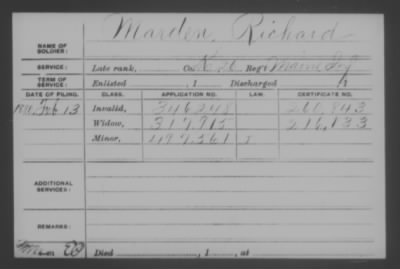 NAME OF SOLDIER: Marden, Richard
SERVICE: Late rank, Co. K, Reg't Maine Inf
TERM OF SERVICE: Enlisted , 1 Discharged , 1
DATE OF FILING. CLASS. APPLICATION NO. LAW. CERTIFICATE NO.
Feb 13 Invalid, 346248 260,843
Widow, 317,715 216,133
Minor, 497,561
ADDITIONAL SERVICES:
REMARKS:
Died , 1 , at